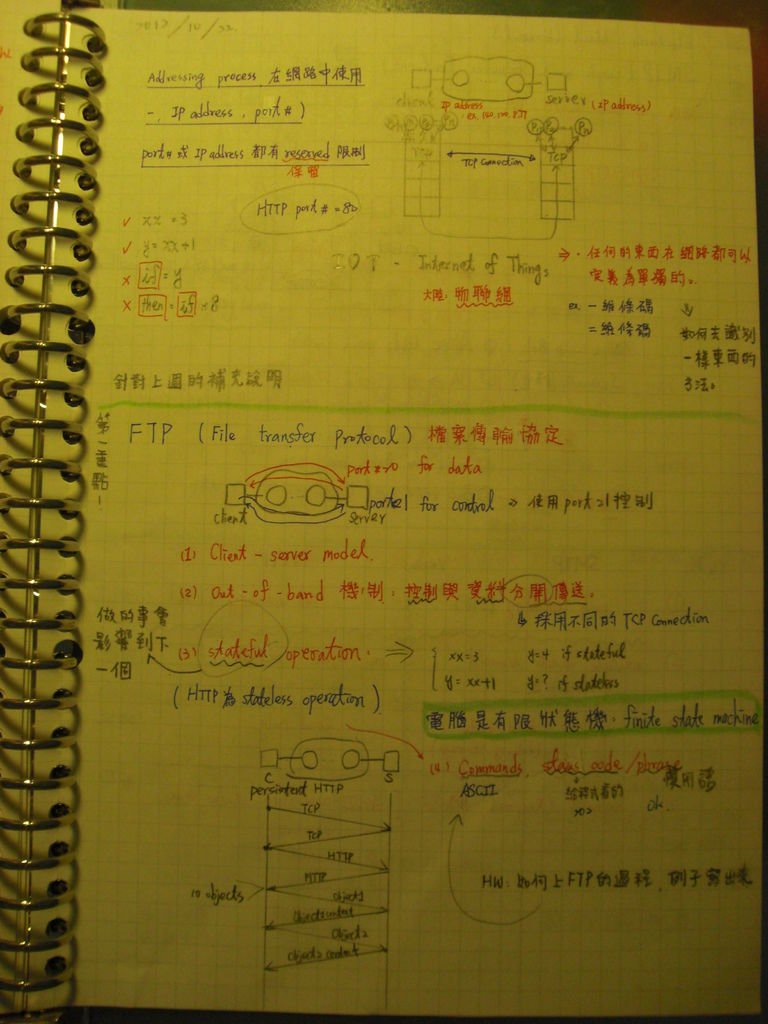 2012/10/22
Addressing process 在網路中使用
IP address, port #)
port# 或 IP address 都有 reserved 限制
保留
HTTP port # = 80
client
server
IP address
(IP address)
TCP
TCP connection
TCP
✓ xx = 3
✓ y = xx + 1
× if = y
× then = if + 8
IOT - Internet of Things
大陸: 物聯網
⇒ 任何的東西在網路都可以
定義為單獨的。
ex. 一維條碼
二維條碼
如何去識別
一樣東西的
方法。
針對上週的補充說明
第一重點!
FTP (File transfer protocol) 檔案傳輸協定
port#20 for data
port21 for control » 使用port 21控制
client
server
(1) Client-server model.
(2) Out-of-band 機制: 控制與資料分開傳送。
↳ 採用不同的 TCP Connection
做的事會
影響到下
一個
(3) stateful operation. ⇒
xx=3 y=4 if stateful
y=xx+1 y=? if stateless
(HTTP為 stateless operation)
電腦是有限狀態機: finite state machine
(4) Commands, status code/phrase
ASCII
給程式看的
使用者
ok.
C
S
persistent HTTP
TCP
TCP
HTTP
HTTP
10 objects
object1
Object1 content
Object2
Object2 content
HW: 如何上FTP的過程, 例子寫出來